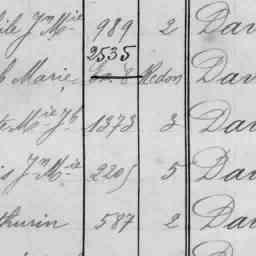 ile Jn Mie 989 2 Dav
2535
h Marie Redon Dav
te Mie Jh 1373 3 Dav
is Jn Mie 2205 5 Dav
thurin 587 2 Dav